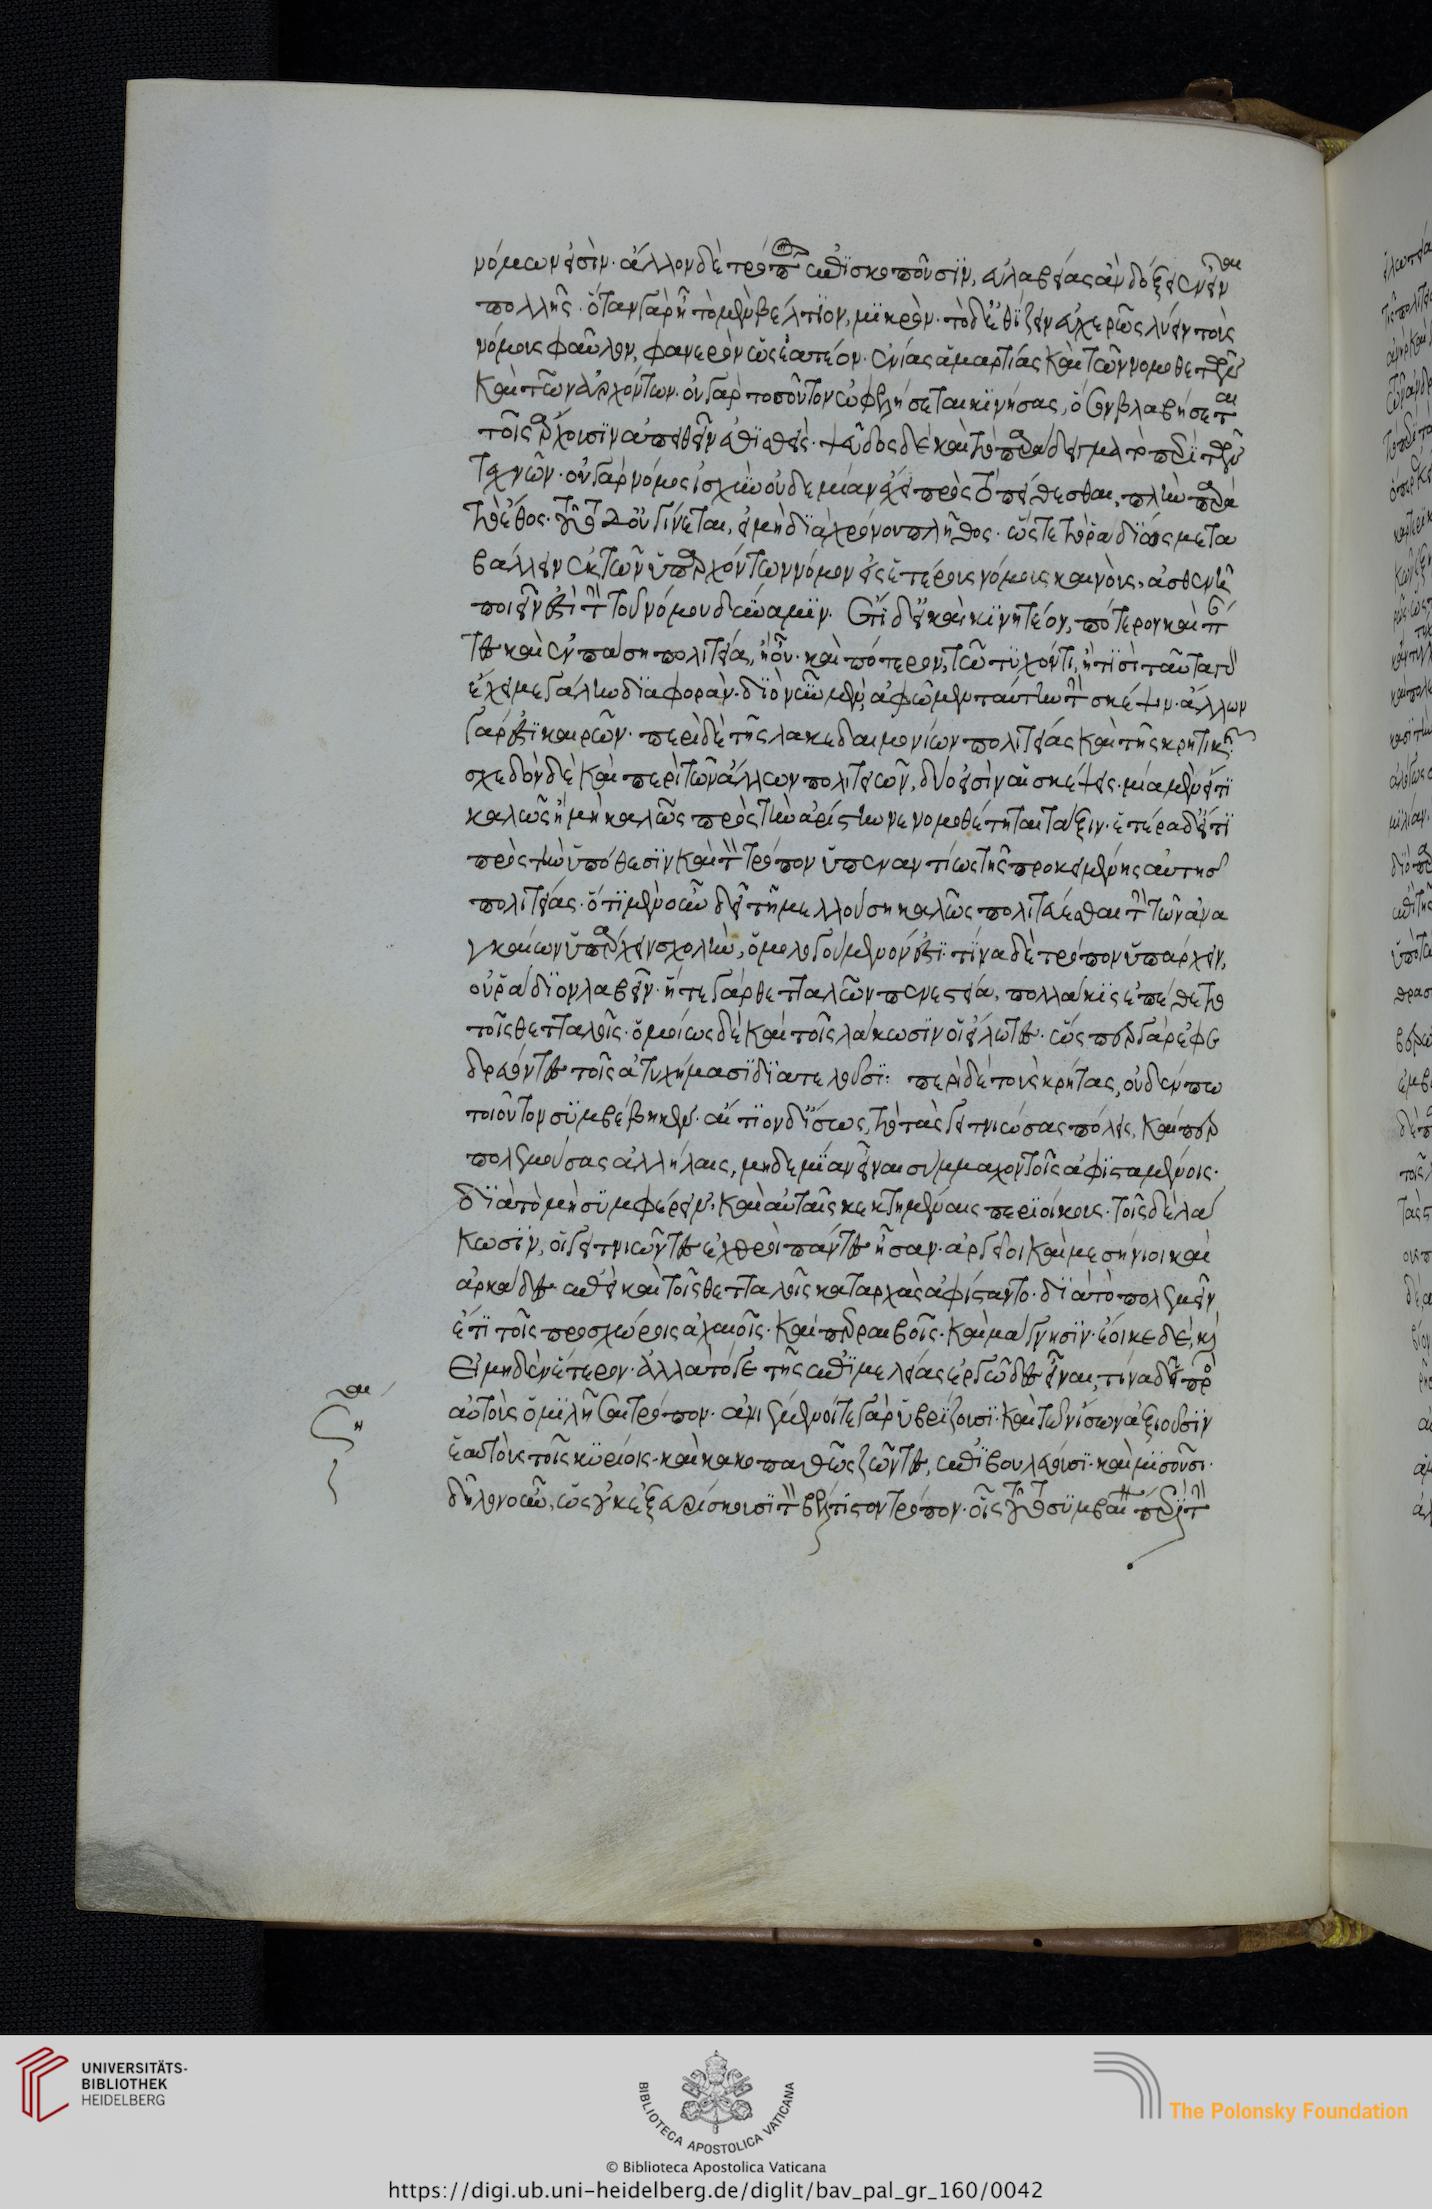 νόμων εἰσίν. ἄλλον δὲ τρόπον ἐπισκοποῦσιν, εὐλαβείας ἂν δόξειεν εἶναι
πολλῆς. ὅταν γὰρ ᾖ τὸ μὲν βέλτιον, μικρὸν. τὸ δ' ἐθίζειν εὐχερῶς λύειν τοὺς
νόμους φαῦλον, φανερὸν ὡς ἐατέον. ἐνίας ἁμαρτίας καὶ τῶν νομοθετῶν
καὶ τῶν ἀρχόντων. οὐ γὰρ τοσοῦτον ὠφελήσεται κινήσας, ὅσον βλαβήσεται
τοῖς ἄρχουσιν ἀπειθεῖν ἐθισθείς. ψεῦδος δὲ καὶ τὸ παράδειγμα τὸ περὶ τῶν
τεχνῶν. οὐ γὰρ νόμος ἰσχὺν οὐδεμίαν ἔχει πρὸς τὸ πείθεσθαι, πλὴν παρὰ
τὸ ἔθος. τοῦτο δ' οὐ γίνεται, εἰ μὴ διὰ χρόνου πλῆθος. ὥστε τὸ ῥαδίως μετα
βάλλειν ἐκ τῶν ὑπαρχόντων νόμων εἰς ἑτέρους νόμους καινοὺς, ἀσθενῆ
ποιεῖν ἐστὶ τὴν τοῦ νόμου δύναμιν. ἔτι δ' εἰ καὶ κινητέον, πότερον καὶ πάν
τες καὶ ἐν πάσῃ πολιτείᾳ, ἢ οὔ. καὶ πότερον, τῷ τυχόντι, ἢ τισὶ ταῦτα γὰρ
ἔχει μεγάλην διαφοράν. διὸ νῦν μὲν, ἀφῶμεν ταύτην τὴν σκέψιν. ἄλλων
γάρ ἐστι καιρῶν. περὶ δὲ τῆς λακεδαιμονίων πολιτείας καὶ τῆς κρητικῆς.
σχεδὸν δὲ καὶ περὶ τῶν ἄλλων πολιτειῶν, δύο εἰσὶν αἱ σκέψεις. μία μὲν εἴ τι
καλῶς ἢ μὴ καλῶς πρὸς τὴν ἀρίστην νενομοθέτηται τάξιν. ἑτέρα δ' εἴ τι
πρὸς τὴν ὑπόθεσιν καὶ τὸν τρόπον ὑπεναντίως τῆς προκειμένης αὐτῆς
πολιτείας. ὅτι μὲν οὖν δεῖ τῇ μελλούσῃ καλῶς πολιτεύεσθαι τὴν τῶν ἀνα
γκαίων ὑπάρχειν σχολὴν, ὁμολογούμενόν ἐστι. τίνα δὲ τρόπον ὑπάρχειν,
οὐ ῥάδιον λαβεῖν. ἥ τε γὰρ θετταλῶν πενεστεία, πολλάκις ἐπέθετο
τοῖς θετταλοῖς. ὁμοίως δὲ καὶ τοῖς λάκωσιν οἱ εἵλωτες. ὥσπερ γὰρ ἐφε
δρεύοντες τοῖς ἀτυχήμασι διατελοῦσι: περὶ δὲ τοὺς κρῆτας, οὐδέν πω
τοιοῦτον συμβέβηκεν. αἴτιον δ' ἴσως, τὸ τὰς γειτνιώσας πόλεις, καίπερ
πολεμούσας ἀλλήλαις, μηδεμίαν εἶναι σύμμαχον τοῖς ἀφισταμένοις.
διὰ τὸ μὴ συμφέρειν. καὶ αὐταῖς κεκτημέναις περιοίκους. τοῖς δὲ λά
κωσιν, οἱ γειτνιῶντες ἐχθροὶ πάντες ἦσαν. ἀργεῖοι καὶ μεσήνιοι καὶ
ἀρκάδες. ἐπεὶ καὶ τοῖς θετταλοῖς καταρχὰς ἀφίσταντο. διὰ τὸ πολεμεῖν
ἔτι τοῖς προσχώροις ἀχαιοῖς. καὶ περραιβοῖς. καὶ μάγνησιν. ἔοικε δὲ, καὶ
εἰ μηδὲν ἕτερον. ἀλλὰ τό γε τῆς ἐπιμελείας ἐργῶδες εἶναι, τίνα δεῖ πρὸς
αὐτοὺς ὁμιλῆσαι τρόπον. ἀνιέμενοί τε γὰρ ὑβρίζουσι. καὶ τῶν ἴσων ἀξιοῦσιν
ἑαυτοὺς τοῖς κυρίοις. καὶ κακοπαθῶς ζῶντες, ἐπιβουλεύουσι. καὶ μισοῦσι.
δῆλον οὖν, ὡς οὐκ ἐξευρίσκουσι τὸν βέλτιστον τρόπον. οἷς τοῦτο συμβαίνει περὶ τὴν
UNIVERSITÄTS-
BIBLIOTHEK
HEIDELBERG
BIBLIOTECA APOSTOLICA VATICANA
© Biblioteca Apostolica Vaticana
The Polonsky Foundation
https://digi.ub.uni-heidelberg.de/diglit/bav_pal_gr_160/0042